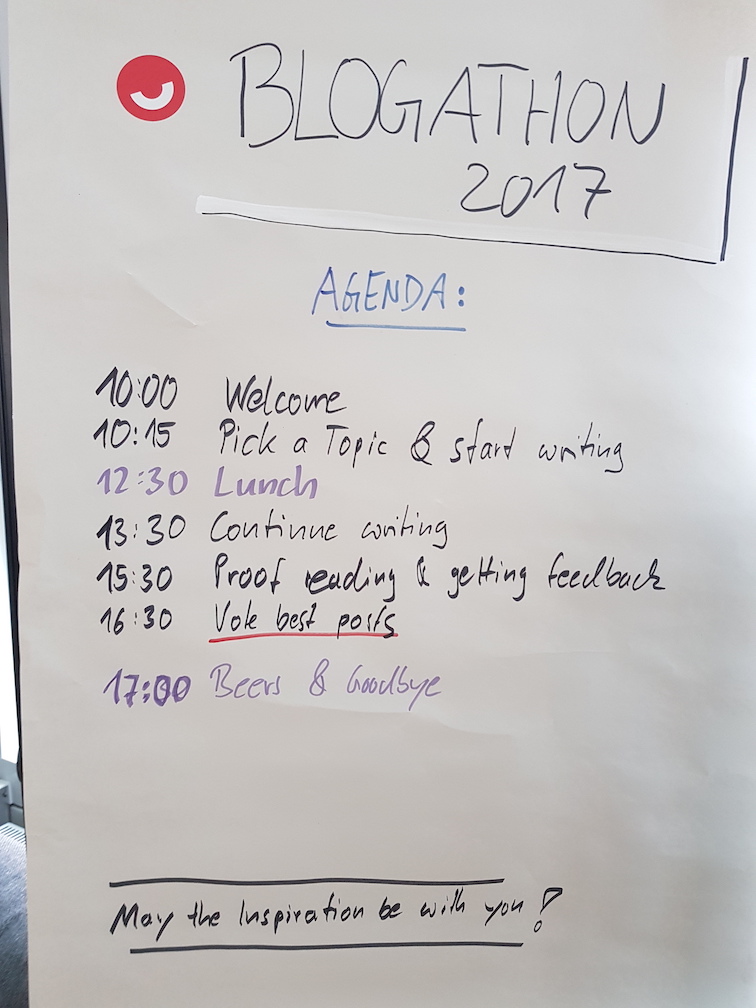 BLOGATHON
2017
AGENDA:
10:00 Welcome
10:15 Pick a Topic & start writing
12:30 Lunch
13:30 Continue writing
15:30 Proof reading & getting feedback
16:30 Vote best posts
17:00 Beers & Goodbye
May the Inspiration be with you!